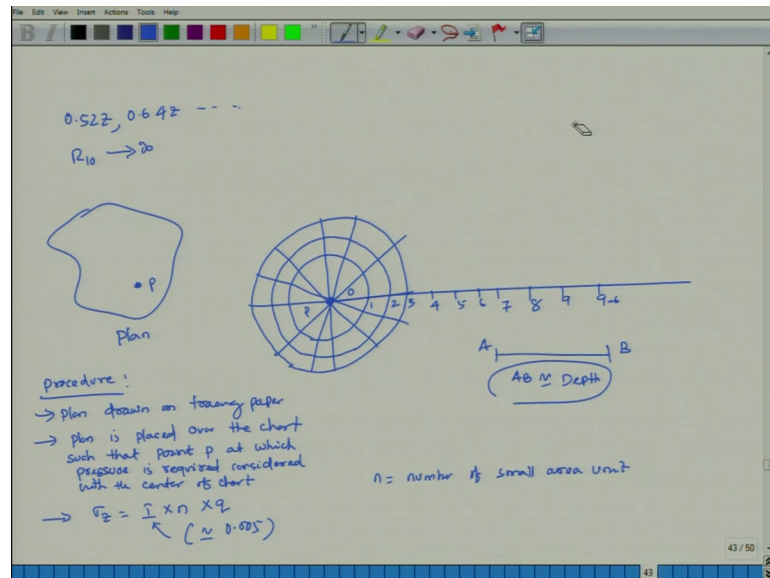 File Edit View Insert Actions Tools Help
B I
0.52z, 0.64z ----
R10 → ∞
P
Plan
0
P
1 2 3 4 5 6 7 8 9 9.6
A B
AB ≃ Depth
Procedure :
→ Plan drawn on tracing paper
→ plan is placed over the chart
such that point P at which
pressure is required considered
with the center of chart
→ σz = I × n × q
(≃ 0.005)
n = number of small area unit
43 / 50
43